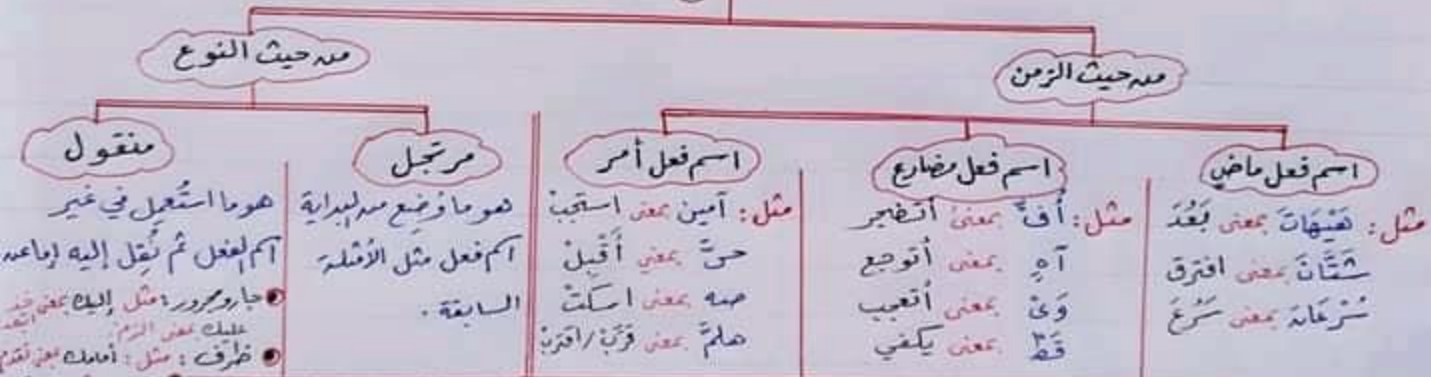 من حيث الزمن
من حيث النوع
اسم فعل ماضي
مثل: هَيْهَاتَ بمعنى بَعُدَ
شَتَّانَ بمعنى افترق
سُرْعَانَ بمعنى سَرُعَ
اسم فعل مضارع
مثل: أُفٍّ بمعنى أتضجر
آهٍ بمعنى أتوجع
وَيْ بمعنى أتعجب
قَطْ بمعنى يكفي
اسم فعل أمر
مثل: آمين بمعنى استجبْ
حيَّ بمعنى أَقْبِلْ
صه بمعنى اسكتْ
هلمَّ بمعنى قرِّبْ/اقتربْ
مرتجل
هو ما وُضِع من البداية
اسم فعل مثل الأمثلة
السابقة.
منقول
هو ما استُعمِل في غير
اسم الفعل ثم نُقِل إليه إما عن
جار ومجرور: مثل إليك بمعنى خذ
عليك بمعنى الزم
ظرف: مثل: أمامك بمعنى تقدم